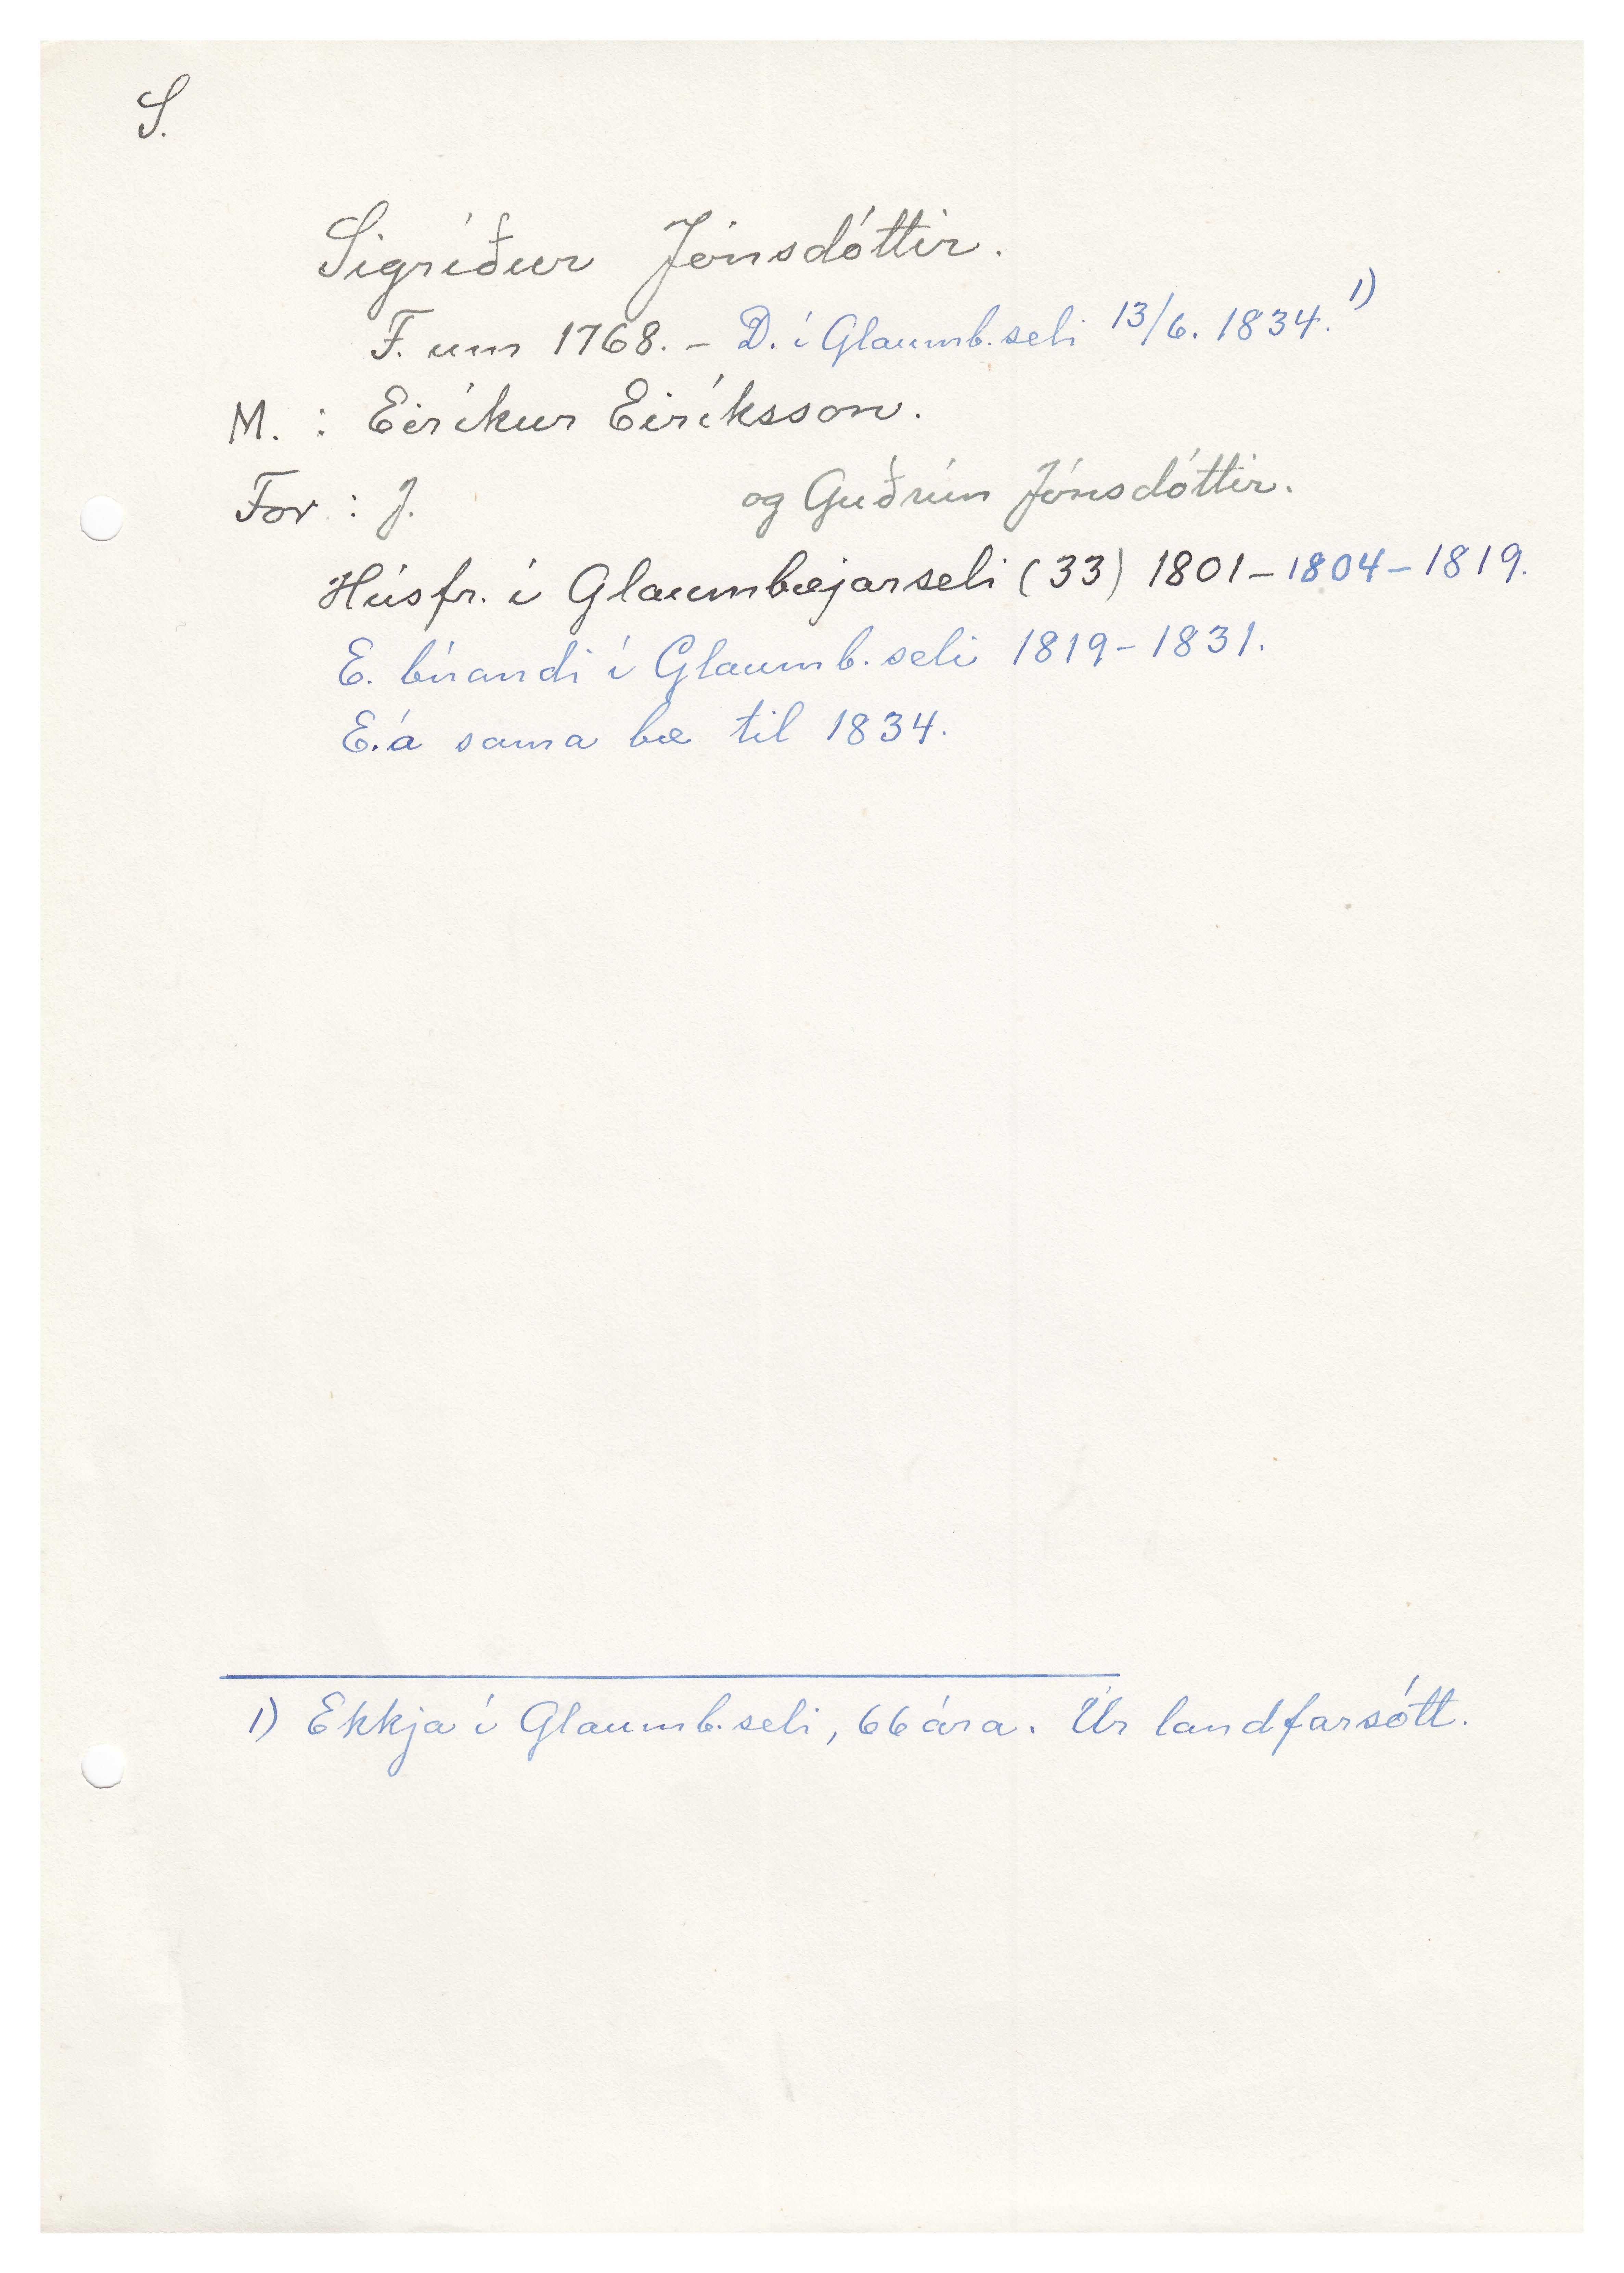 S.
Sigríður Jónsdóttir.
F. um 1768. – D. í Glaumb.seli 13/6. 1834. 1)
M. : Eiríkur Eiríksson.
For : J. og Guðrún Jónsdóttir.
Húsfr. í Glaumbæjarseli (33) 1801–1804–1819.
E. búandi í Glaumb.seli 1819–1831.
E. á sama bæ til 1834.
1) Ekkja í Glaumb.seli, 66 ára. Úr landfarsótt.